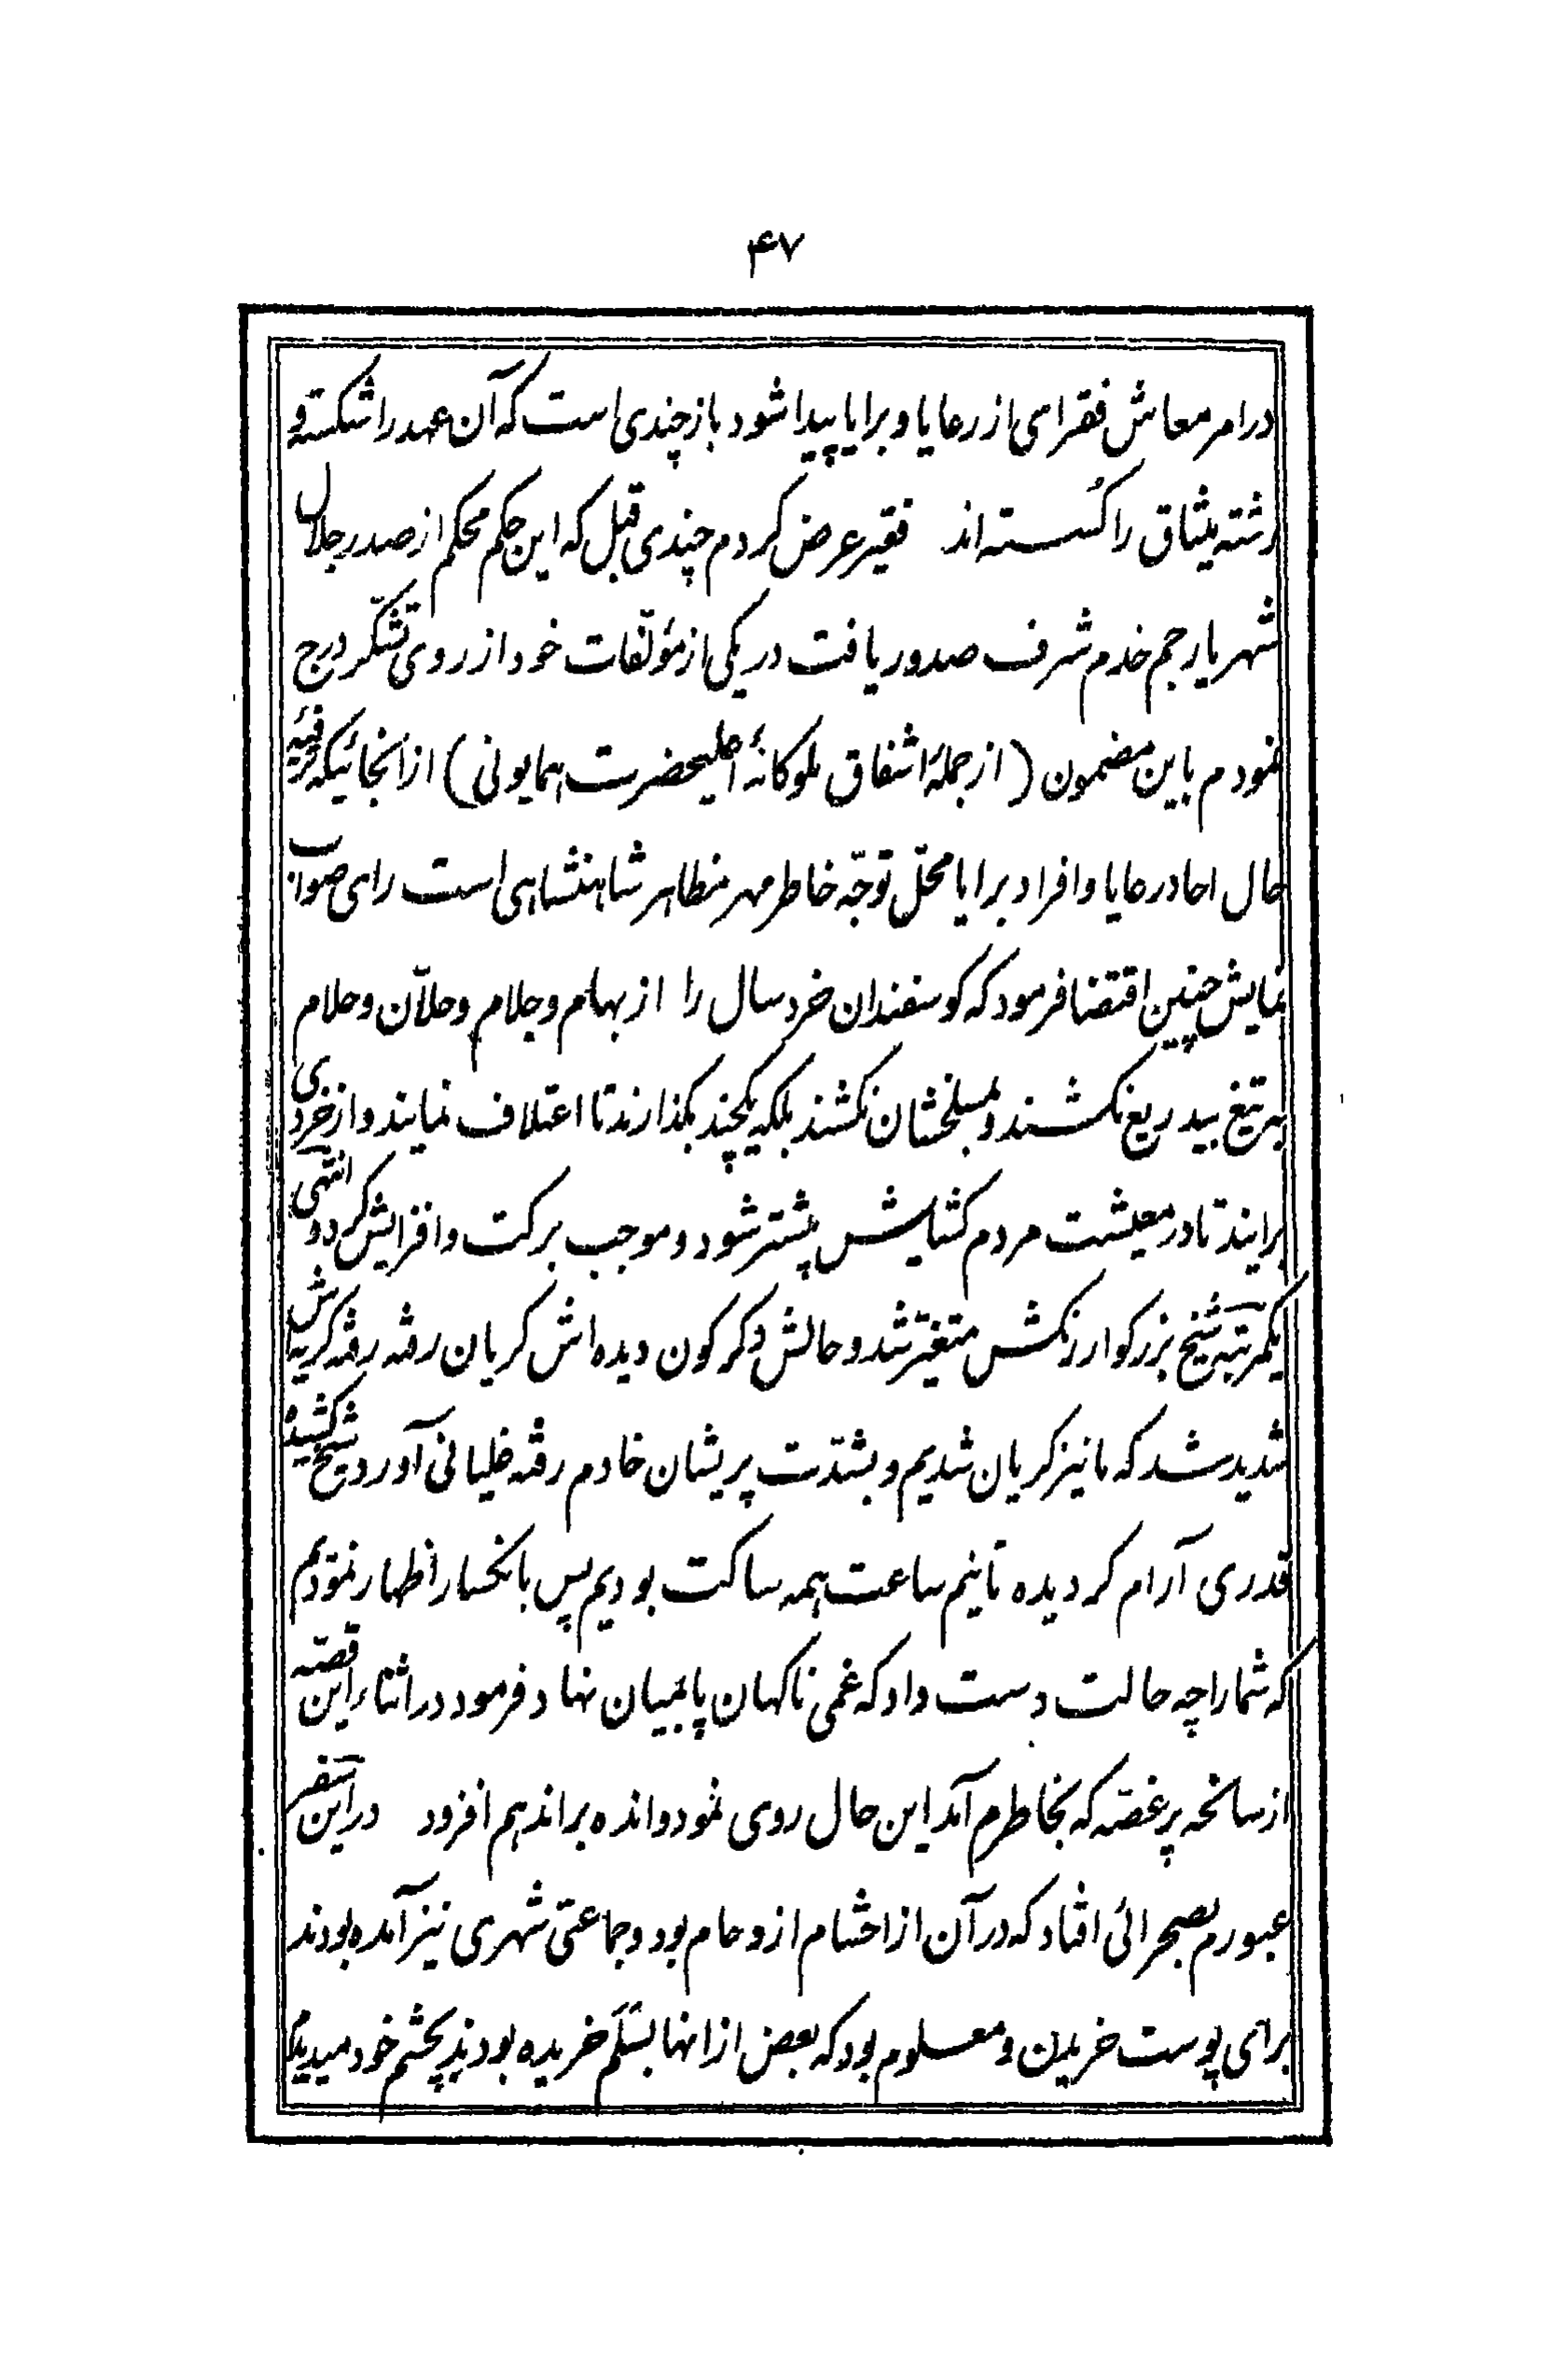 ۴۷
در امر معاش فقرای از رعایا و برایا پیدا شود باز چندی است که آن عهد را شکسته و
رشته میثاق را گسسته اند فقیر عرض کردم چندی قبل که این حکم محکم از صدر جلال
شهریار جم خدم شرف صدور یافت در یکی از مؤلّفات خود از روی تشکّر درج
نمودم باین مضمون (از جملهٔ اشفاق ملوکانهٔ اعلیحضرت همایونی) از آنجائیکه ترفیه
حال احاد رعایا و افراد برایا محلّ توجّه خاطر مهر مظاهر شاهنشاهی است رای صواب
نمایش چنین اقتضا فرمود که کوسفندان خردسال را از بهام و جلام و حلاّن و حلام
به تیغ بیدریغ نکشند و بمسلخشان نکشند بلکه یکچند بگذارند تا اعتلاف نمایند و از خردی
برایند تا در معیشت مردم کشایش بیشتر شود و موجب برکت و افزایش کردد انتهی
یکمرتبه شیخ بزرکوار رنکش متغیّر شد و حالش دکرکون دیده اش کریان رفته رفته کریه اش
شدید شد که ما نیز کریان شدیم و بشدّت پریشان خادم رفته غلیانی آورد شیخ کشیده
قدری آرام کردیده تا نیم ساعت همه ساکت بودیم پس بانکسار اظهار نمودیم
که شما را چه حالت دست داد که غمی ناکهان پا بمیان نهاد فرمود در اثناء این قصّه
از سانحه پر غصّه که بخاطرم آمد این حال روی نمود و انده بر اندهم افزود در این سفر
عبورم بصحرائی افتاد که در آن از احشام ازدحام بود و جماعتی شهری نیز آمده بودند
برای پوست خریدن و معلوم بود که بعض از انها بسَلَم خریده بودند بچشم خود میدیدم